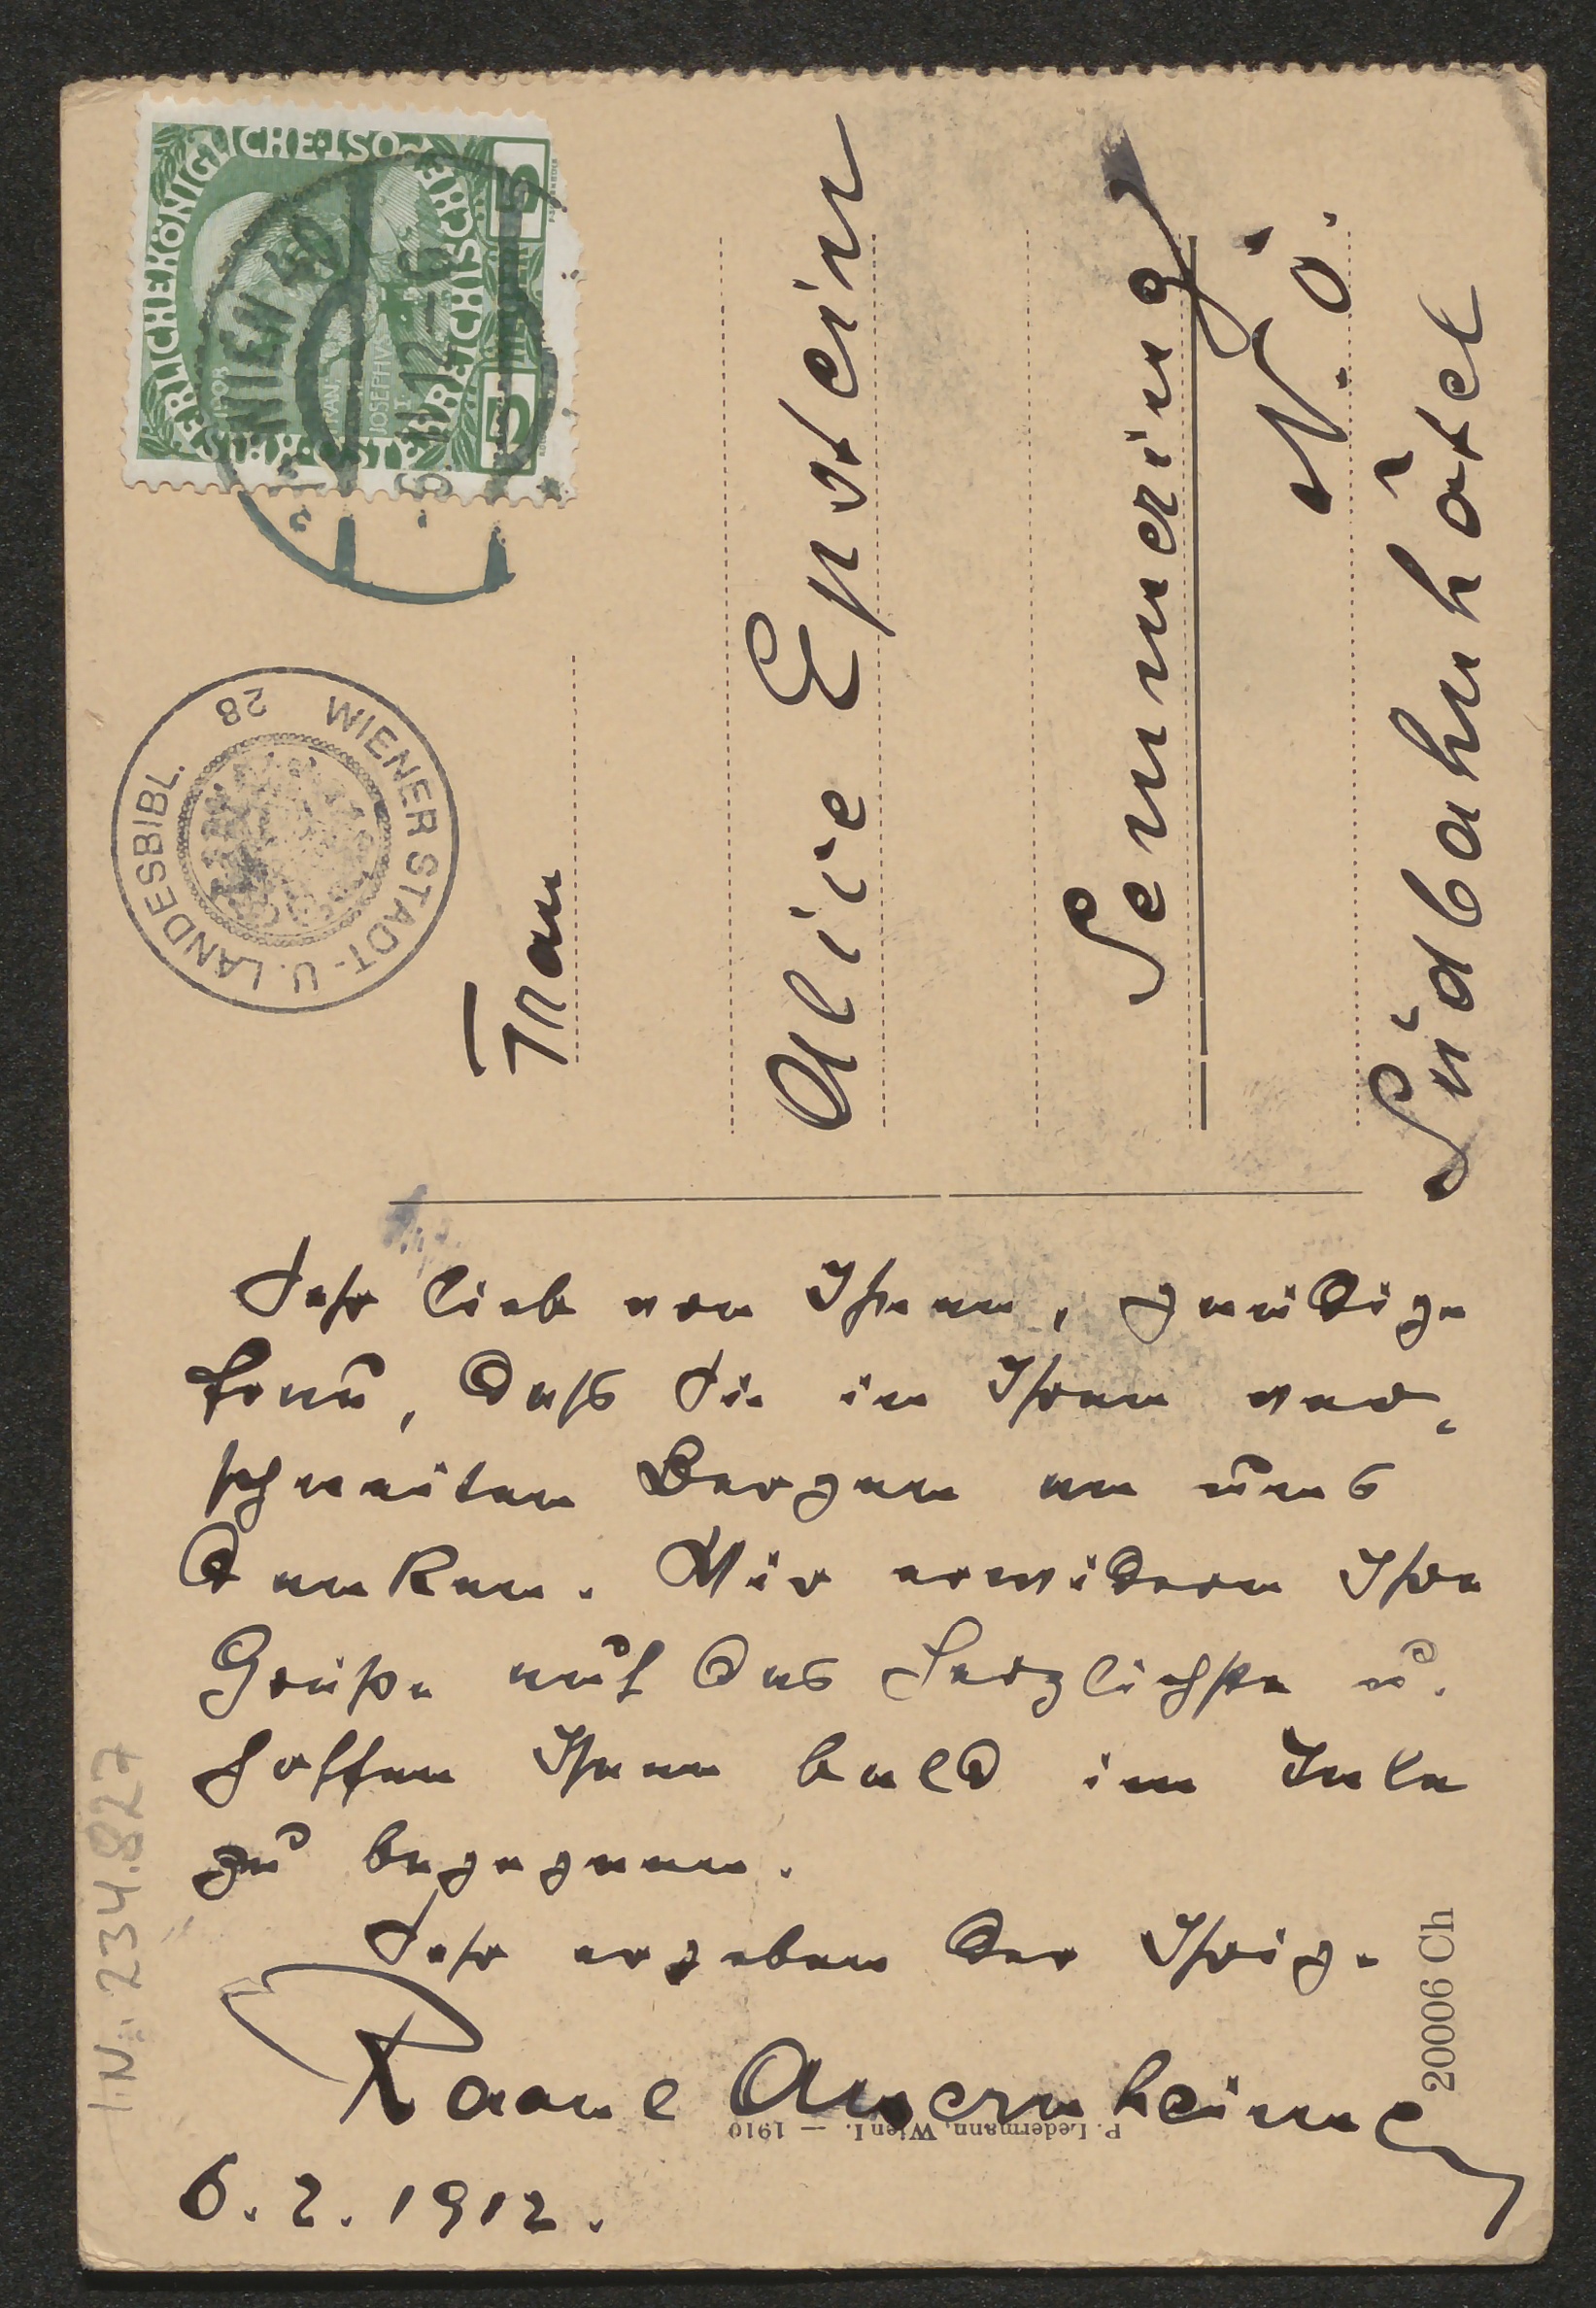 5 HELLER 5
WIEN 50
WIENER STADT- U. LANDESBIBL.
28
Frau
Alice Epstein
Semmering
N.Ö.
Südbahnhôtel
Sehr lieb von Ihnen, gnädige
Frau, daß Sie in Ihren ver-
schneiten Bergen an uns
denken. Wir erwidern Ihre
Grüße auf das Herzlichste u.
hoffen Ihnen bald im Tale
zu begegnen.
Sehr ergeben der Ihrige
Raoul Auernheimer
6.2.1912.
P. Ledermann, Wien I. — 1910
20006 Ch
I.N.: 234.827